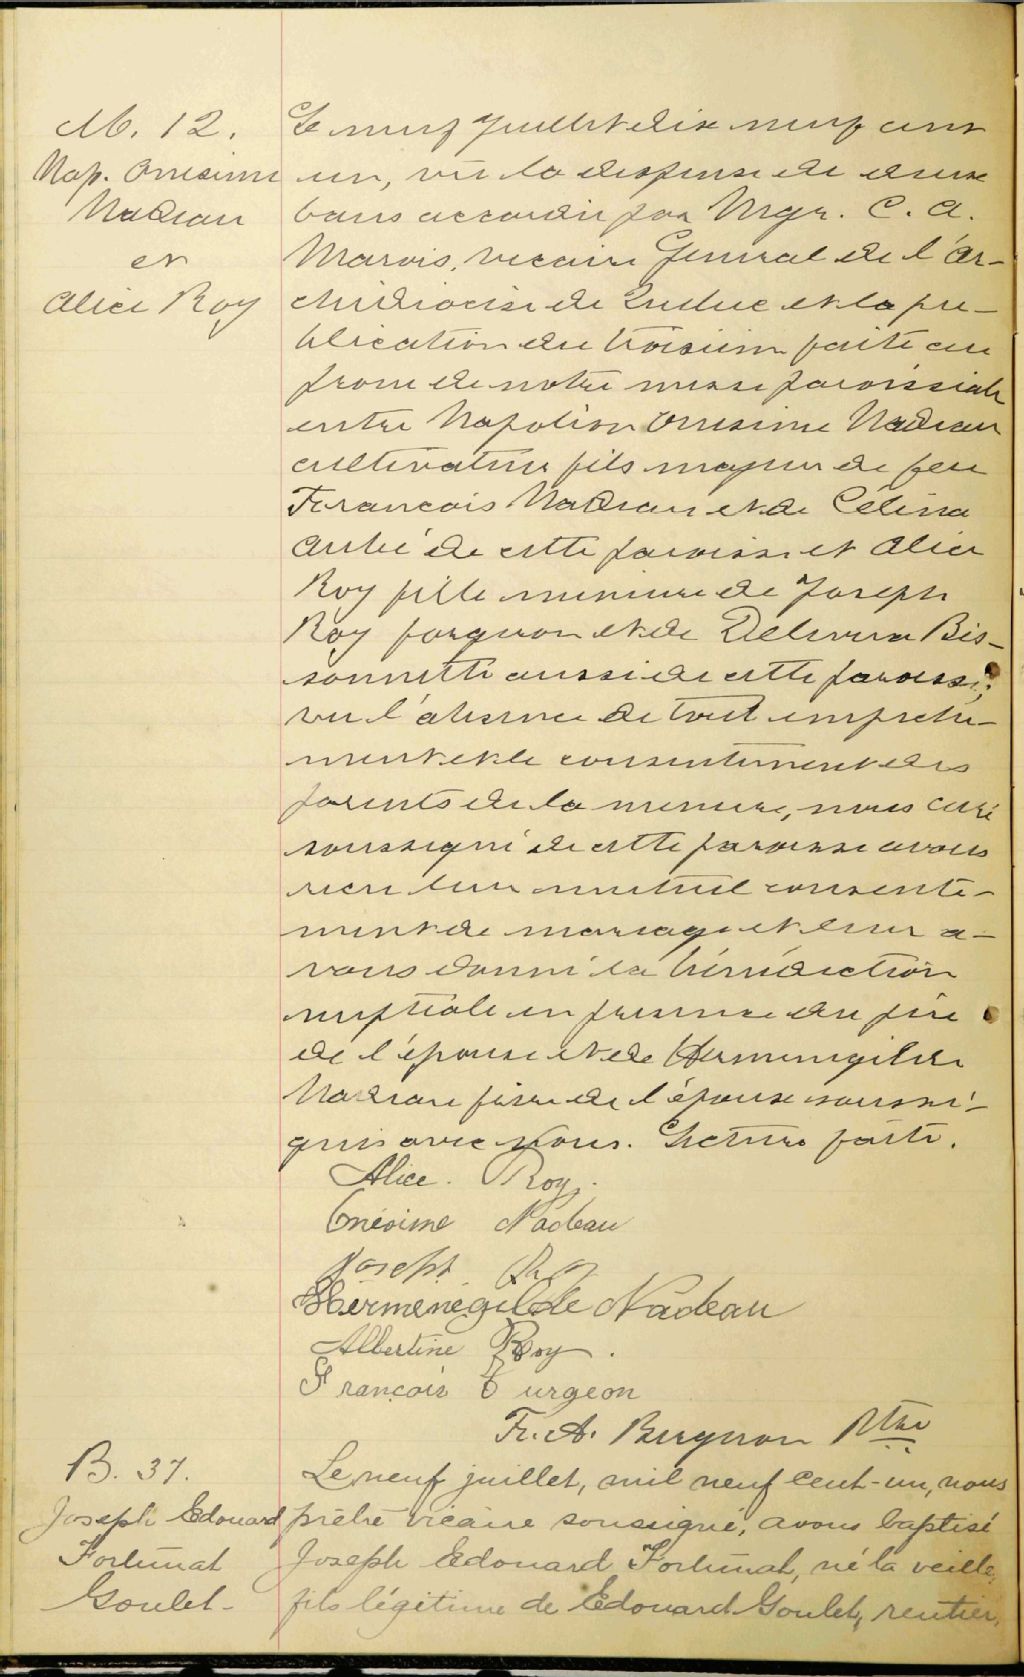 M. 12.
Nap. Onesime
Nadeau
et
Alice Roy
Le neuf juillet dix neuf cent
un, vu la dispense de deux
bans accordée par Mgr. C. A.
Marois, vicaire Général de l'Ar-
chidiocèse de Québec et la pu-
blication du troisième faite au
prone de notre messe paroissiale
entre Napoléon Onesime Nadeau
cultivateur fils majeur de feu
Francois Nadeau et de Célina
Aubé de cette paroisse et Alice
Roy fille mineure de Joseph
Roy forgeron et de Delvina Bis-
sonnette aussi de cette paroisse;
vu l'absence de tout empêche-
ment et le consentement des
parents de la mineure, nous curé
soussigné de cette paroisse avons
recu leur mutuel consente-
ment de mariage et leur a-
vons donné la bénédiction
nuptiale en présence du père
de l'épouse et de Hermenegilde
Nadeau frère de l'époux soussi-
gnés avec nous. Lecture faite.
Alice. Roy.
Onésime Nadeau
Joseph Roy
Herménégilde Nadeau
Albertine Roy.
François Turgeon
Fr. A. Bergeron Ptre
B. 37.
Joseph Edouard
Fortunat
Goulet-
Le neuf juillet, mil neuf cent-un, nous
prêtre vicaire soussigné, avons baptisé
Joseph Edouard Fortunat, né la veille,
fils légitime de Edouard Goulet, rentier,